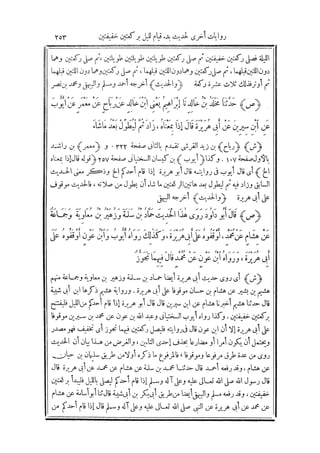 روايات أخرى لحديث بدء قيام الليل بركعتين خفيفتين ٢٥٣
الليلة فصلى ركعتين خفيفتين ثم صلى ركعتين طويلتين طويلتين طويلتين ثم صلى ركعتين وهما
دون اللتين قبلهما، ثم صلى ركعتين وهما دون اللتين قبلهما، ثم صلى ركعتين وهما دون اللتين قبلهما
ثم أوتر فذلك ثلاث عشرة ركعة ﴿والحديث﴾ أخرجه أحمد ومسلم والبيهقي ومحمد بن نصر
﴿ص﴾ حَدَّثَنَا مَخْلَدُ بْنُ خَالِدٍ نَا إِبْرَاهِيمُ يَعْنِي ابْنَ خَالِدٍ عَنْ رَبَاحٍ عَنْ مَعْمَرٍ عَنْ أَيُّوبَ
عَنِ ابْنِ سِيرِينَ عَنْ أَبِي هُرَيْرَةَ قَالَ إِذَا بِمَعْنَاهُ، زَادَ ثُمَّ لْيُطَوِّلْ بَعْدُ مَا شَاءَ
﴿ش﴾ ﴿رباح﴾ بن زيد القرشي تقدم بالثاني صفحة ٣٢٢ و ﴿معمر﴾ بن راشد
بالأول صفحة ١٠٧. وكذا ﴿أيوب﴾ بن كيسان السختياني صفحة ٢٥٧ ﴿قوله قال إذا بمعناه
الخ﴾ أي قال أيوب في روايته قال أبو هريرة إذا قام أحدكم الخ وذكر معنى الحديث
السابق وزاد فيه ثم ليطول بعد هاتين الركعتين ما شاء أن يطول من صلاته، فالحديث موقوف
على أبي هريرة ﴿والحديث﴾ أخرجه البيهقي
﴿ص﴾ قَالَ أَبُو دَاوُدَ رَوَى هَذَا الْحَدِيثَ حَمَّادُ بْنُ سَلَمَةَ وَزُهَيْرُ بْنُ مُعَاوِيَةَ وَجَمَاعَةٌ
عَنْ هِشَامٍ عَنْ مُحَمَّدٍ، أَوْقَفُوهُ عَلَى أَبِي هُرَيْرَةَ، وَكَذَلِكَ رَوَاهُ أَيُّوبُ وَابْنُ عَوْنٍ أَوْقَفُوهُ عَلَى
أَبِي هُرَيْرَةَ، وَرَوَاهُ ابْنُ عَوْنٍ عَنْ مُحَمَّدٍ قَالَ فِيهِمَا تَجَوَّزْ
﴿ش﴾ أي روى حديث أبي هريرة أيضا حماد بن سلمة وزهير بن معاوية وجماعة منهم
هشيم بن بشير عن هشام بن حسان موقوفا على أبي هريرة. ورواية هشيم ذكرها ابن أبي شيبة
قال حدثنا هشيم أخبرنا هشام عن ابن سيرين قال قال أبو هريرة إذا قام أحدكم من الليل فليفتتح
بركعتين خفيفتين. وكذا رواه أيوب السختياني وعبد الله بن عون عن محمد بن سيرين موقوفا
على أبي هريرة إلا أن ابن عون قال في روايته فليصل ركعتين فيهما تجوز أي تخفيف فهو مصدر
ويحتمل أن يكون أمرا أو مضارعا بحذف إحدى التاءين. والغرض من هذا بيان أن الحديث
روى من عدة طرق مرفوعا وموقوفا، فالمرفوع ما ذكره أولا من طريق سليمان بن حيان
عن هشام. وقد رفعه أحمد قال حدثنا محمد بن سلمة عن هشام عن محمد عن أبي هريرة قال
قال رسول الله صلى الله تعالى عليه وعلى آله وسلم إذا قام أحدكم ليصلي بالليل فليبدأ بركعتين
خفيفتين. وقد رفعه مسلم والبيهقي أيضا من طريق أبي بكر بن أبي شيبة قال ثنا أبو أسامة عن هشام
عن محمد عن أبي هريرة عن النبي صلى الله تعالى عليه وعلى آله وسلم قال إذا قام أحدكم من